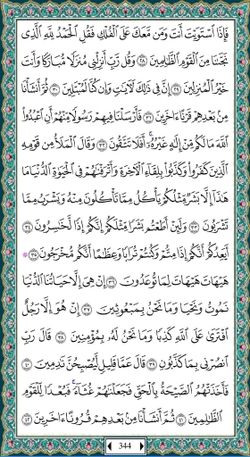 فَإِذَا ٱسْتَوَيْتَ أَنتَ وَمَن مَّعَكَ عَلَى ٱلْفُلْكِ فَقُلِ ٱلْحَمْدُ لِلَّهِ ٱلَّذِى
نَجَّىٰنَا مِنَ ٱلْقَوْمِ ٱلظَّـٰلِمِينَ ٢٨ وَقُل رَّبِّ أَنزِلْنِى مُنزَلًا مُّبَارَكًا وَأَنتَ
خَيْرُ ٱلْمُنزِلِينَ ٢٩ إِنَّ فِى ذَٰلِكَ لَـَٔايَـٰتٍ وَإِن كُنَّا لَمُبْتَلِينَ ٣٠ ثُمَّ أَنشَأْنَا
مِنۢ بَعْدِهِمْ قَرْنًا ءَاخَرِينَ ٣١ فَأَرْسَلْنَا فِيهِمْ رَسُولًا مِّنْهُمْ أَنِ ٱعْبُدُوا۟
ٱللَّهَ مَا لَكُم مِّنْ إِلَـٰهٍ غَيْرُهُۥٓ ۖ أَفَلَا تَتَّقُونَ ٣٢ وَقَالَ ٱلْمَلَأُ مِن قَوْمِهِ
ٱلَّذِينَ كَفَرُوا۟ وَكَذَّبُوا۟ بِلِقَآءِ ٱلْـَٔاخِرَةِ وَأَتْرَفْنَـٰهُمْ فِى ٱلْحَيَوٰةِ ٱلدُّنْيَا مَا
هَـٰذَآ إِلَّا بَشَرٌ مِّثْلُكُمْ يَأْكُلُ مِمَّا تَأْكُلُونَ مِنْهُ وَيَشْرَبُ مِمَّا
تَشْرَبُونَ ٣٣ وَلَئِنْ أَطَعْتُم بَشَرًا مِّثْلَكُمْ إِنَّكُمْ إِذًا لَّخَـٰسِرُونَ ٣٤
أَيَعِدُكُمْ أَنَّكُمْ إِذَا مِتُّمْ وَكُنتُمْ تُرَابًا وَعِظَـٰمًا أَنَّكُم مُّخْرَجُونَ ٣٥
هَيْهَاتَ هَيْهَاتَ لِمَا تُوعَدُونَ ٣٦ إِنْ هِىَ إِلَّا حَيَاتُنَا ٱلدُّنْيَا
نَمُوتُ وَنَحْيَا وَمَا نَحْنُ بِمَبْعُوثِينَ ٣٧ إِنْ هُوَ إِلَّا رَجُلٌ
ٱفْتَرَىٰ عَلَى ٱللَّهِ كَذِبًا وَمَا نَحْنُ لَهُۥ بِمُؤْمِنِينَ ٣٨ قَالَ رَبِّ
ٱنصُرْنِى بِمَا كَذَّبُونِ ٣٩ قَالَ عَمَّا قَلِيلٍ لَّيُصْبِحُنَّ نَـٰدِمِينَ ٤٠
فَأَخَذَتْهُمُ ٱلصَّيْحَةُ بِٱلْحَقِّ فَجَعَلْنَـٰهُمْ غُثَآءً ۚ فَبُعْدًا لِّلْقَوْمِ
ٱلظَّـٰلِمِينَ ٤١ ثُمَّ أَنشَأْنَا مِنۢ بَعْدِهِمْ قُرُونًا ءَاخَرِينَ ٤٢
344